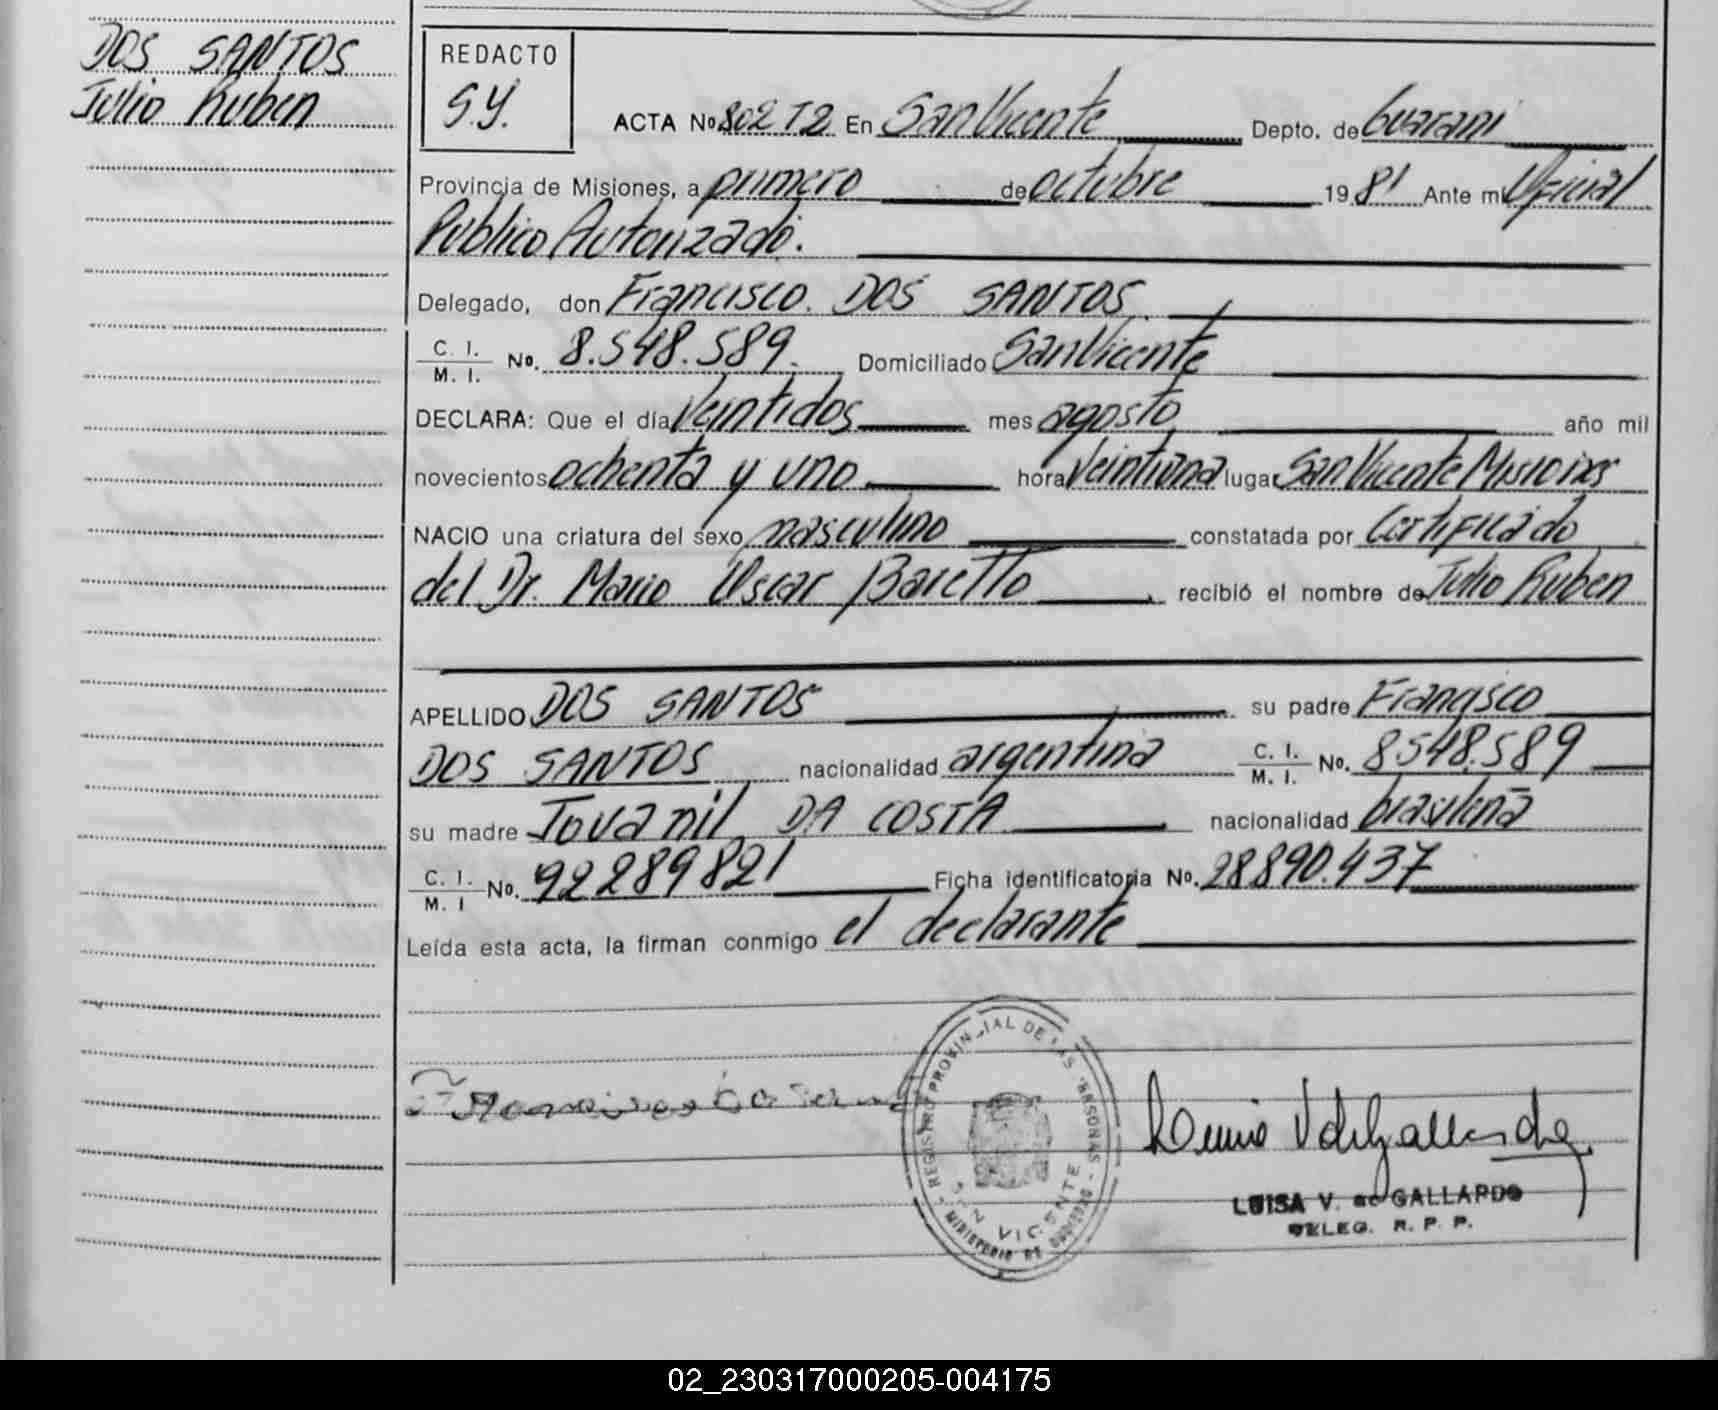 DOS SANTOS
Julio Ruben
REDACTO
S.Y.
ACTA No. 802 T2 En San Vicente Depto. de Guarani
Provincia de Misiones, a primero de octubre 1981 Ante mi Oficial
Publico Autorizado.
Delegado, don Francisco DOS SANTOS
C. I. / M. I. No. 8.548.589. Domiciliado San Vicente
DECLARA: Que el día veintidos mes agosto año mil
novecientos ochenta y uno hora veintiuna lugar San Vicente Misiones
NACIO una criatura del sexo masculino constatada por Certificado
del Dr. Mario Oscar Baretto recibió el nombre de Julio Ruben
APELLIDO DOS SANTOS su padre Francisco
DOS SANTOS nacionalidad argentina C. I. / M. I. No. 8548.589
su madre Jovanil DA COSTA nacionalidad brasileña
C. I. / M. I No. 92289821 Ficha identificatoria No. 28890.437
Leída esta acta, la firman conmigo el declarante
REGISTRO PROVINCIAL DE LAS PERSONAS
SAN VICENTE
MINISTERIO DE GOBIERNO
LUISA V. de GALLARDO
DELEG. R. P. P.
02_230317000205-004175